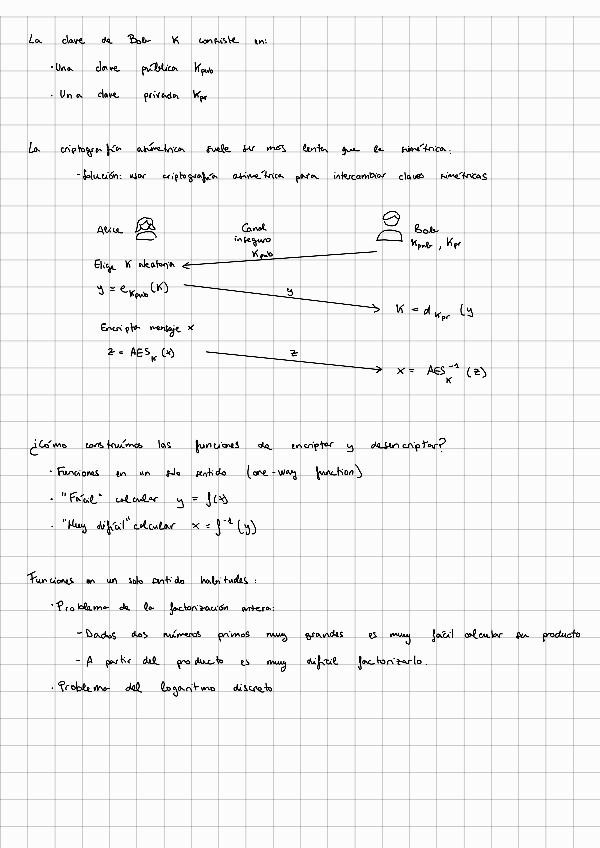 La clave de Bob K consiste en:
· Una clave pública Kpub
· Una clave privada Kpr
La criptografía asimétrica suele ser mas lenta que la simétrica.
- Solución: usar criptografía asimétrica para intercambiar claves simétricas
Alice Canal inseguro Bob
Kpub Kpub, Kpr
Elige K aleatoria
y = eKpub(K) y K = dKpr(y
Encripta mensaje x
z = AESK(x) z x = AESK⁻¹(z)
¿Cómo construimos las funciones de encriptar y desencriptar?
· Funciones en un solo sentido (one-way function)
· "Fácil" calcular y = f(x)
· "Muy difícil" calcular x = f⁻¹(y)
Funciones en un solo sentido habitudes:
· Problema de la factorización entera:
- Dados dos números primos muy grandes es muy facil calcular su producto
- A partir del producto es muy dificil factorizarlo.
· Problema del logaritmo discreto